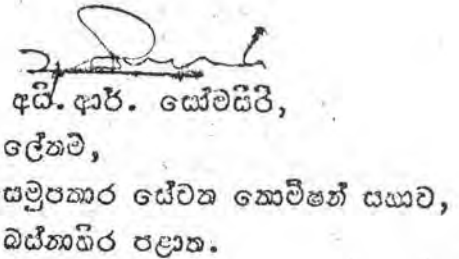 අයි. ආර්. සෝමසිරි,
ලේකම්,
සමුපකාර සේවක කොමිෂන් සභාව,
බස්නාහිර පළාත.